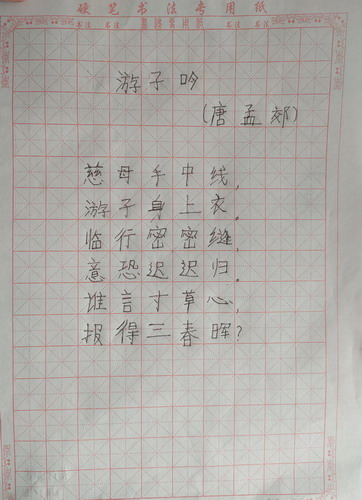 硬笔书法专用纸
书法 书法 书法 书法
游子吟
(唐孟郊)
慈母手中线,
游子身上衣.
临行密密缝,
意恐迟迟归.
谁言寸草心,
报得三春晖?